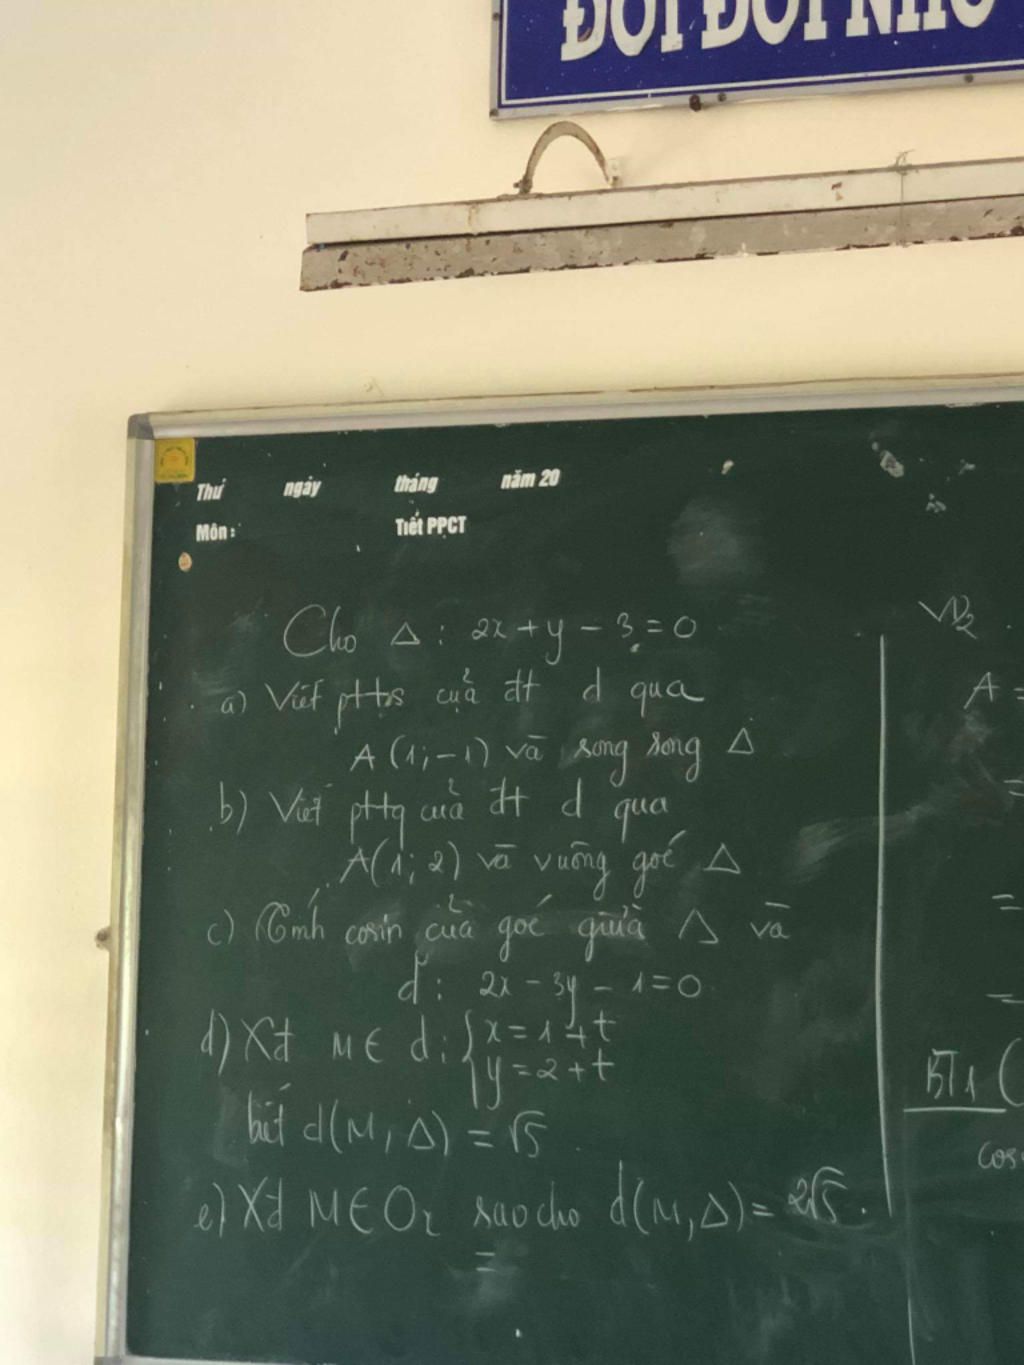 ĐỜI ĐỜI NHỚ
Thứ ngày tháng năm 20
Môn: Tiết PPCT
Cho Δ: 2x + y - 3 = 0
a) Viết pttts của đt d qua
A (1; -1) và song song Δ
b) Viết pttq của đt d qua
A(1; 2) và vuông góc Δ
c) Tính cosin của góc giữa Δ và
d: 2x - 3y - 1 = 0
d) Xđ M ∈ d: { x = 1 + t
y = 2 + t
biết d(M, Δ) = √5.
e) Xđ M ∈ Ox sao cho d(M, Δ) = 2√5.
VD2
A =
=
=
=
BT1 (
cos